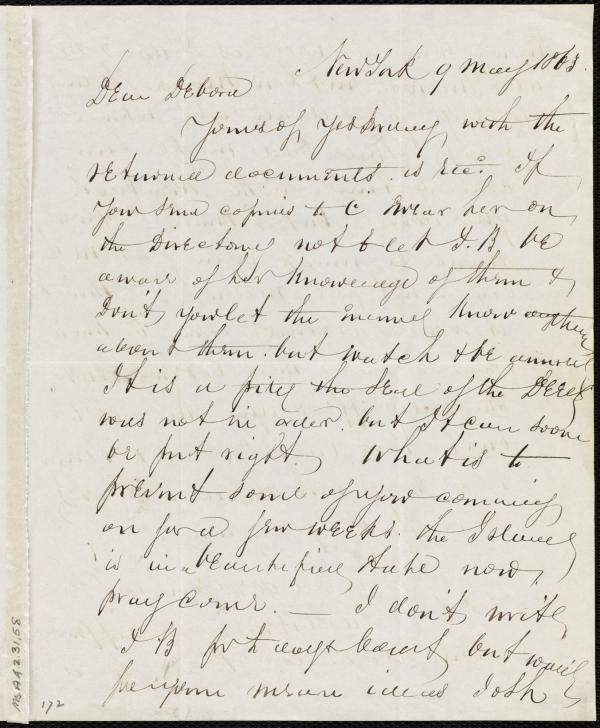 New York 9 May 1863.
Dear Debora
Yours of yesterday with the
returned documents. is recd. If
you send copies to C. swear her on
the Directory not to let J. B be
aware of her knowledge of them &
Don't you let the enemy know anything
about them. but watch & be
It is a pity the seal of the Deed
was not in order. but It can soon
be put right. What is to
prevent some of you coming
on for a few weeks. the Island
is in a beautiful state now,
pray come. — I don't write
J B for
mean ideas Josh
Ms A 9.2.31, 58
172